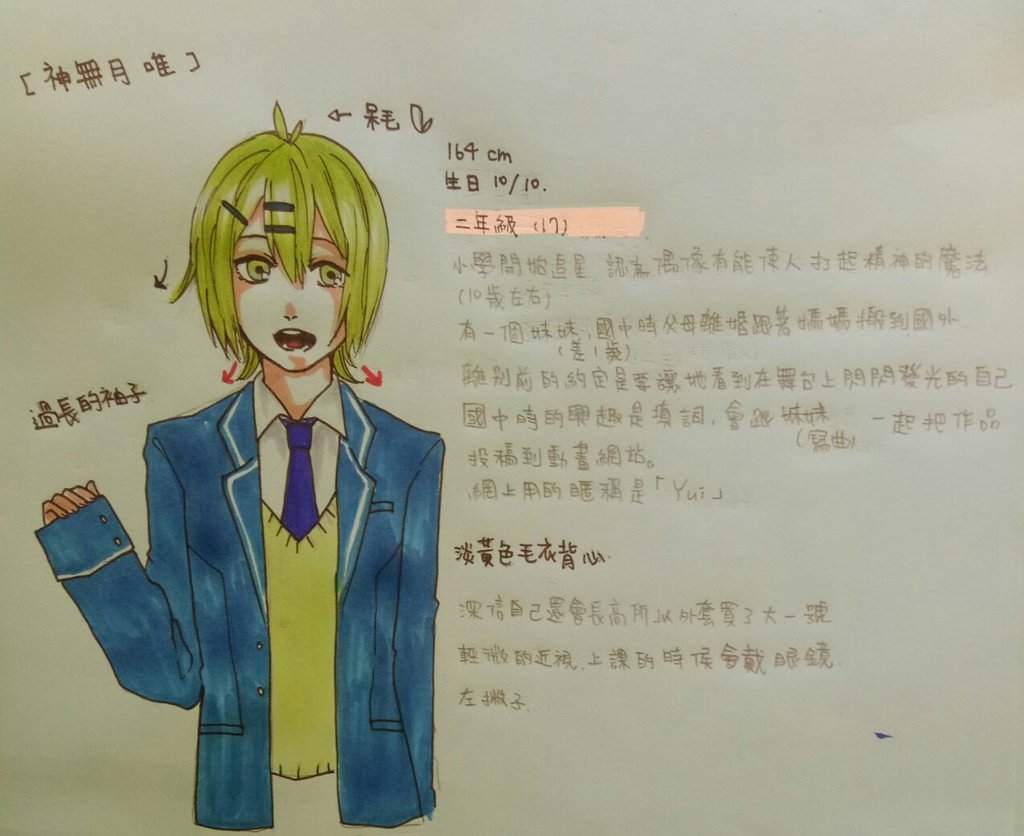 [神無月 唯]
← 呆毛
164 cm
生日 10/10.
二年級 (17)
小學開始追星,認為偶像有能使人打起精神的魔法
(10歲左右)
有一個妹妹,國中時父母離婚跟著媽媽搬到國外.
(差1歲)
離別前的約定是要讓她看到在舞台上閃閃發光的自己
過長的袖子
國中時的興趣是填詞,會跟妹妹 一起把作品
(寫曲)
投稿到動畫網站。
網上用的暱稱是「Yui」
淡黃色毛衣背心.
深信自己還會長高所以外套買了大一號
輕微的近視,上課的時侯會戴眼鏡.
左撇子.